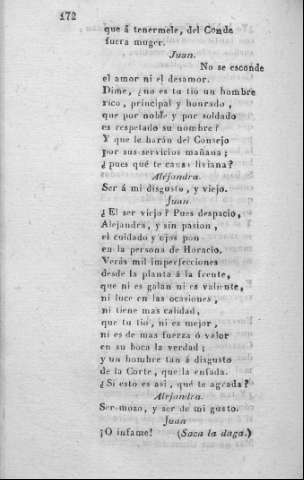 172
que á tenermele, del Conde
fuera muger.
Juan.
No se esconde
el amor ni el desamor.
Dime, ¿no es tu tio un hombre
rico, principal y honrado,
que por noble y por soldado
es respetado su nombre?
Y que le harán del Consejo
por sus servicios mañana;
¿pues qué te causa liviana?
Alejandra.
Ser á mi disgusto, y viejo.
Juan
¿El ser viejo? Pues despacio,
Alejandra, y sin pasion,
el cuidado y ojos pon
en la persona de Horacio.
Verás mil imperfecciones
desde la planta á la frente,
que ni es galan ni es valiente,
ni luce en las ocasiones,
ni tiene mas calidad,
que tu tio, ni es mejor,
ni es de mas fuerza ó valor
en su boca la verdad;
y un hombre tan á disgusto
de la Corte, que la enfada.
¿Si esto es asi, qué te agrada?
Alejandra.
Ser mozo, y ser de mi gusto.
Juan
¡O infame! (Saca la daga.)